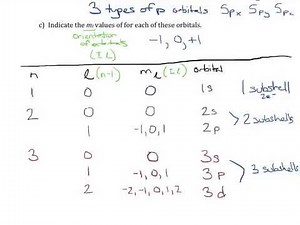 3 types of p orbitals 5px 5py 5pz
c) Indicate the ml values of for each of these orbitals.
orientation of orbitals (±l)
-1, 0, +1
n l (n-1) ml (±l) orbital
1 0 0 1s 1 subshell
2 0 0 2s 2 subshells
1 -1,0,1 2p
3 0 0 3s
1 -1,0,1 3p 3 subshells
2 -2,-1,0,1,2 3d